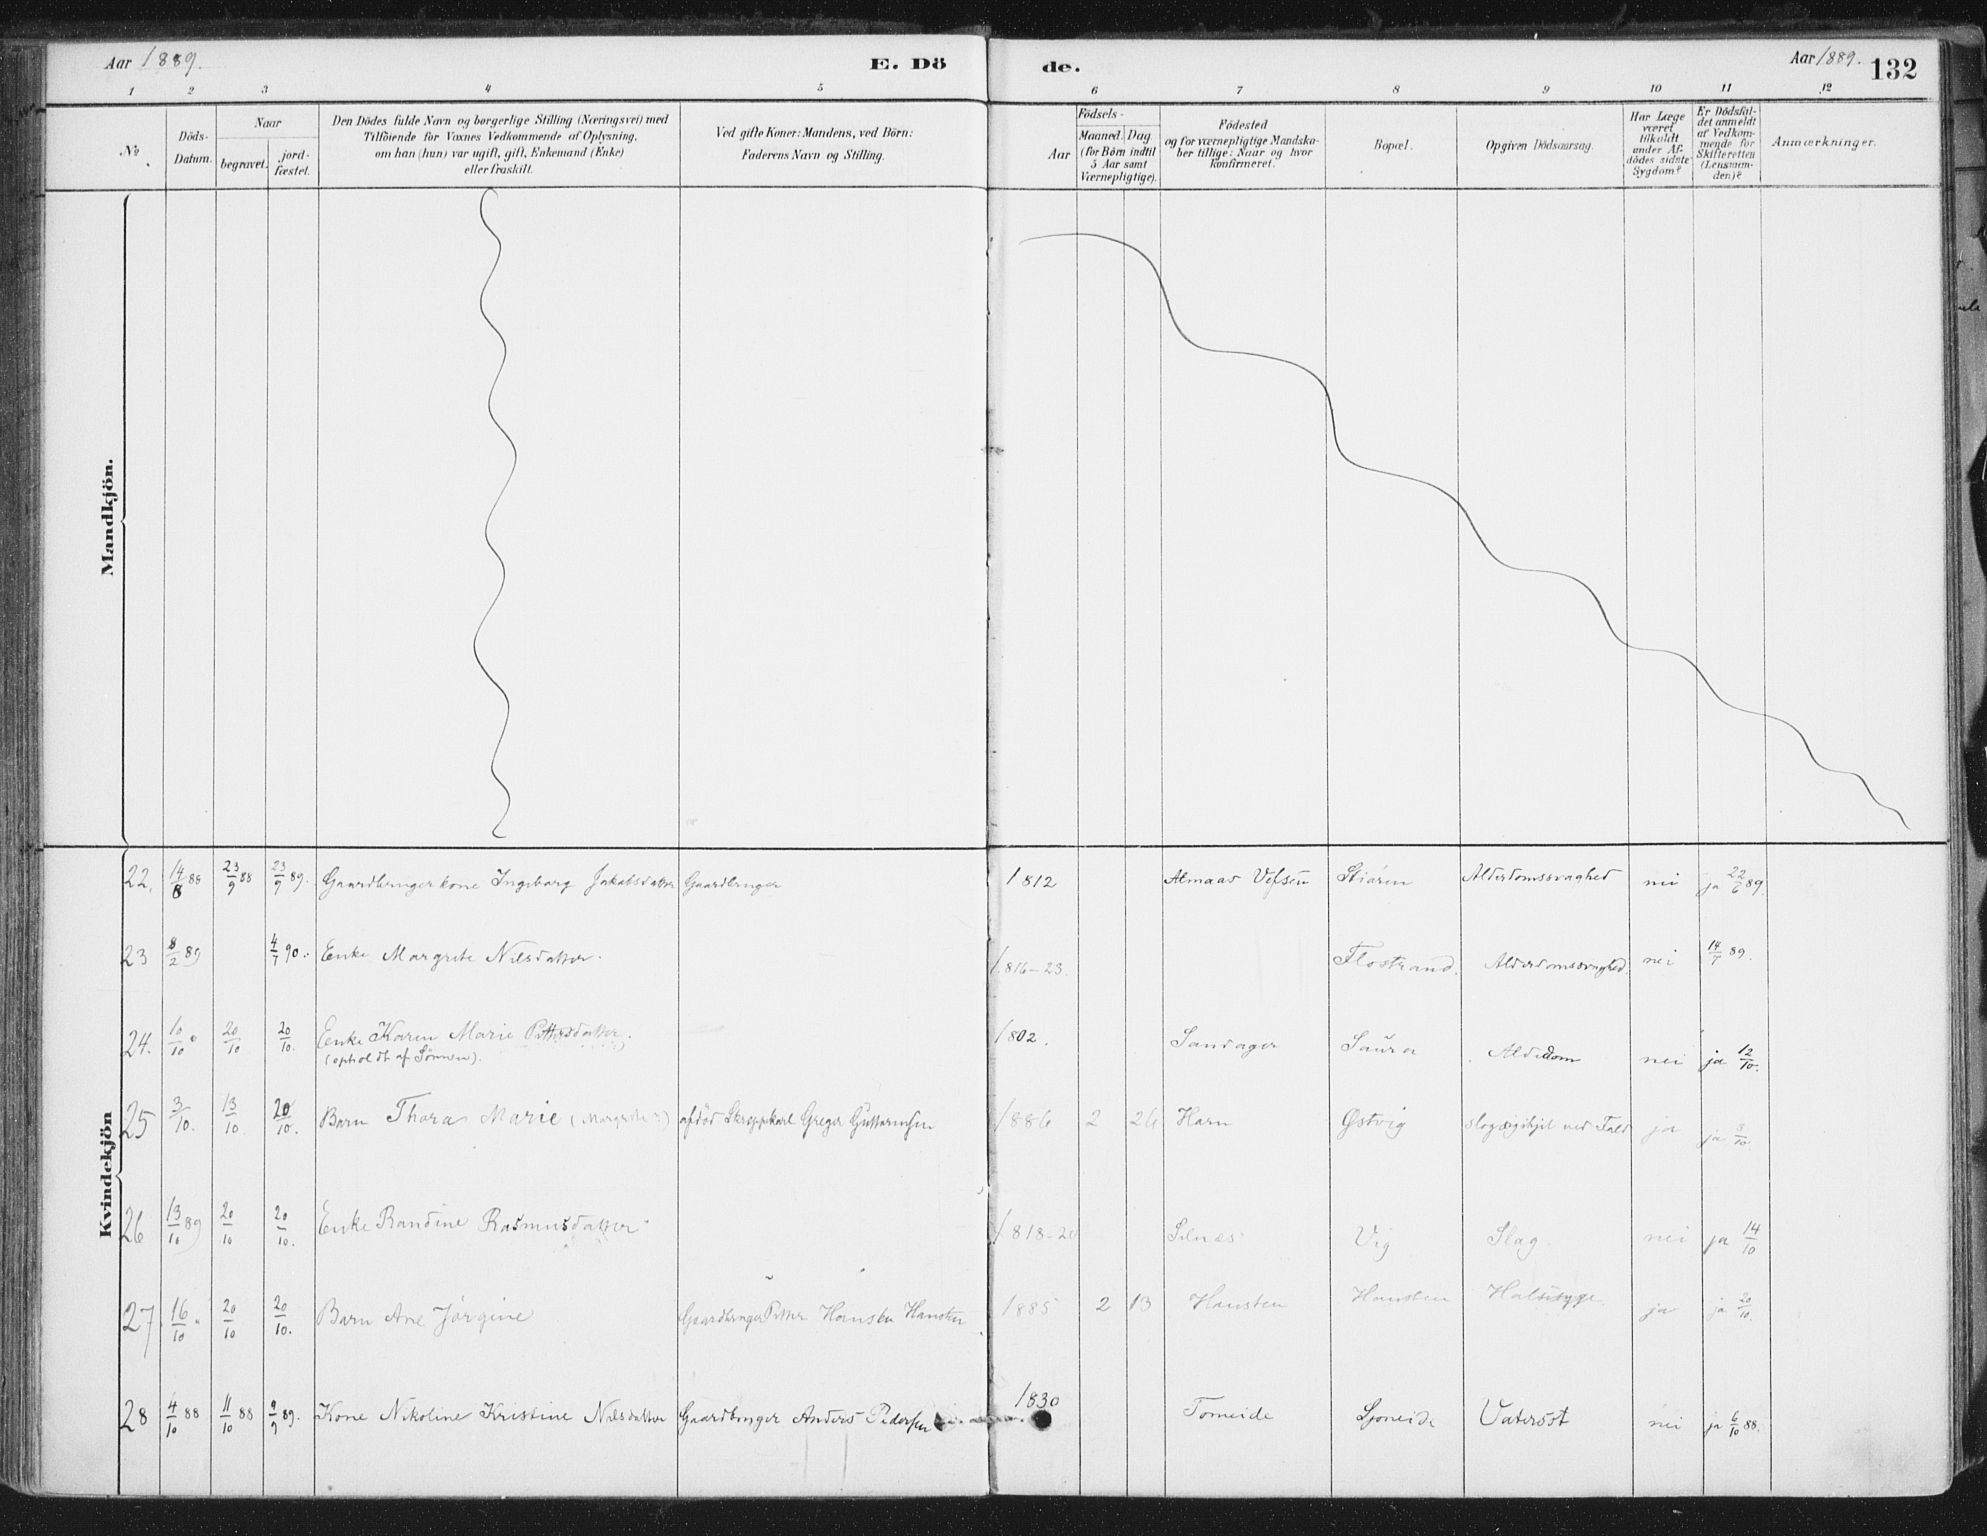 Aar 1889.
E. Dö
de.
Aar 1889.
132
1 2 3 4 5 6 7 8 9 10 11 12
No.
Döds-
Datum.
Naar
begravet.
jord-
fæstet.
Den Dödes fulde Navn og borgerlige Stilling (Næringsvei) med
Tilföiende for Voxnes Vedkommende af Oplysning,
om han (hun) var ugift, gift, Enkemand (Enke)
eller fraskilt.
Ved gifte Koner: Mandens, ved Börn:
Faderens Navn og Stilling.
Födsels-
Aar
Maaned. Dag
(for Börn indtil
5 Aar samt
Værnepligtige).
Födested
og for værnepligtige Mandska-
ber tillige: Naar og hvor
konfirmeret.
Bopæl.
Opgiven Dödsaarsag.
Har Læge
været
tilkaldt
under Af-
dödes sidste
Sygdom?
Er Dödsfal-
det anmeldt
af Vedkom-
mende for
Skifteretten
(Lensman-
den)?
Anmærkninger.
Mandkjön.
Kvindekjön
22. 14/8 88 23/9 88 23/9 89. Gaardbrugerkone Ingeborg Jakobsdatter Gaardbruger 1812 Almaas Vefsen Stiören Alderdomssvaghed nei ja 22/6 89.
23 8/2 89 4/7 90. Enke Margrete Nilsdatter. 1816-23. Flostrand. Alderdomssvaghed. nei 14/7 89.
24. 10/10 " 20/10 20/10. Enke Karen Marie Pettersdatter. 1802. Sandager Saura Alderdom nei ja 12/10.
(opholdt af Sönnen).
25 3/10. 13/10. 20/10. Barn Thora Marie (Margrete?) afdöd Skreppkarl Greger Guttormsen 1886 2 26 Harn Østvig ved Fald ja ja 3/10.
26 13/10 89 20/10 20/10. Enke Randine Rasmusdatter 1818-20 Selnæs Vig Slag. nei ja 14/10
27 16/10 " 20/10 20/10. Barn Ane Jörgine Gaardbruger Petter Hansen Hansten 1885 2 13 Hansten Hansten Halssyge. ja ja 20/10.
28 4/10 88 11/10 88 9/9 89. Kone Nikoline Kristine Nilsdatter Gaardbruger Anders Pedersen 1830 Tomeide Sjoneide Vatersot nei ja 6/10 88.